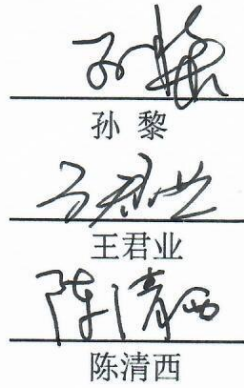 孙黎
孙 黎
王君业
王君业
陈清西
陈清西